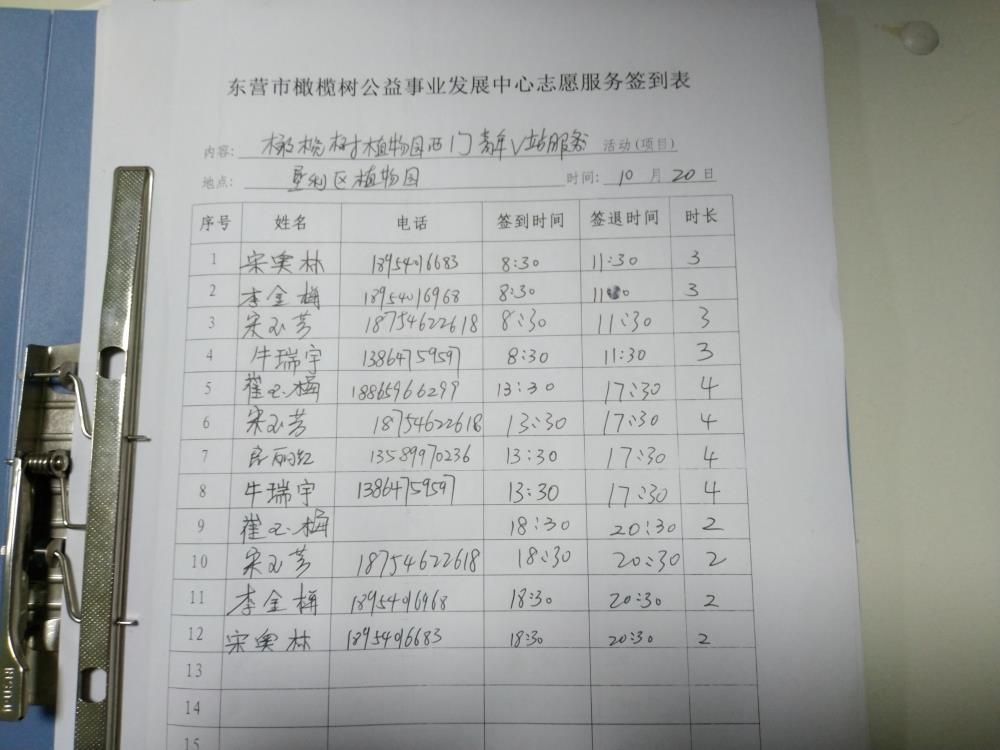 东营市橄榄树公益事业发展中心志愿服务签到表
内容: 橄榄树植物园西门青年V站服务 活动(项目)
地点: 垦利区植物园 时间: 10 月 20 日
序号 姓名 电话 签到时间 签退时间 时长
1 宋奥林 18954016683 8:30 11:30 3
2 李金梅 18954016968 8:30 3
3 宋玉芳 18754622618 8:30 11:30 3
4 牛瑞宇 13864759597 8:30 11:30 3
5 崔玉梅 18865966299 13:30 17:30 4
6 宋玉芳 18754622618 13:30 17:30 4
7 13589970236 13:30 17:30 4
8 牛瑞宇 13864759597 13:30 17:30 4
9 崔玉梅 18:30 20:30 2
10 宋玉芳 18754622618 18:30 20:30 2
11 李金梅 18954016968 18:30 20:30 2
12 宋奥林 18954016683 18:30 20:30 2
13
14
15